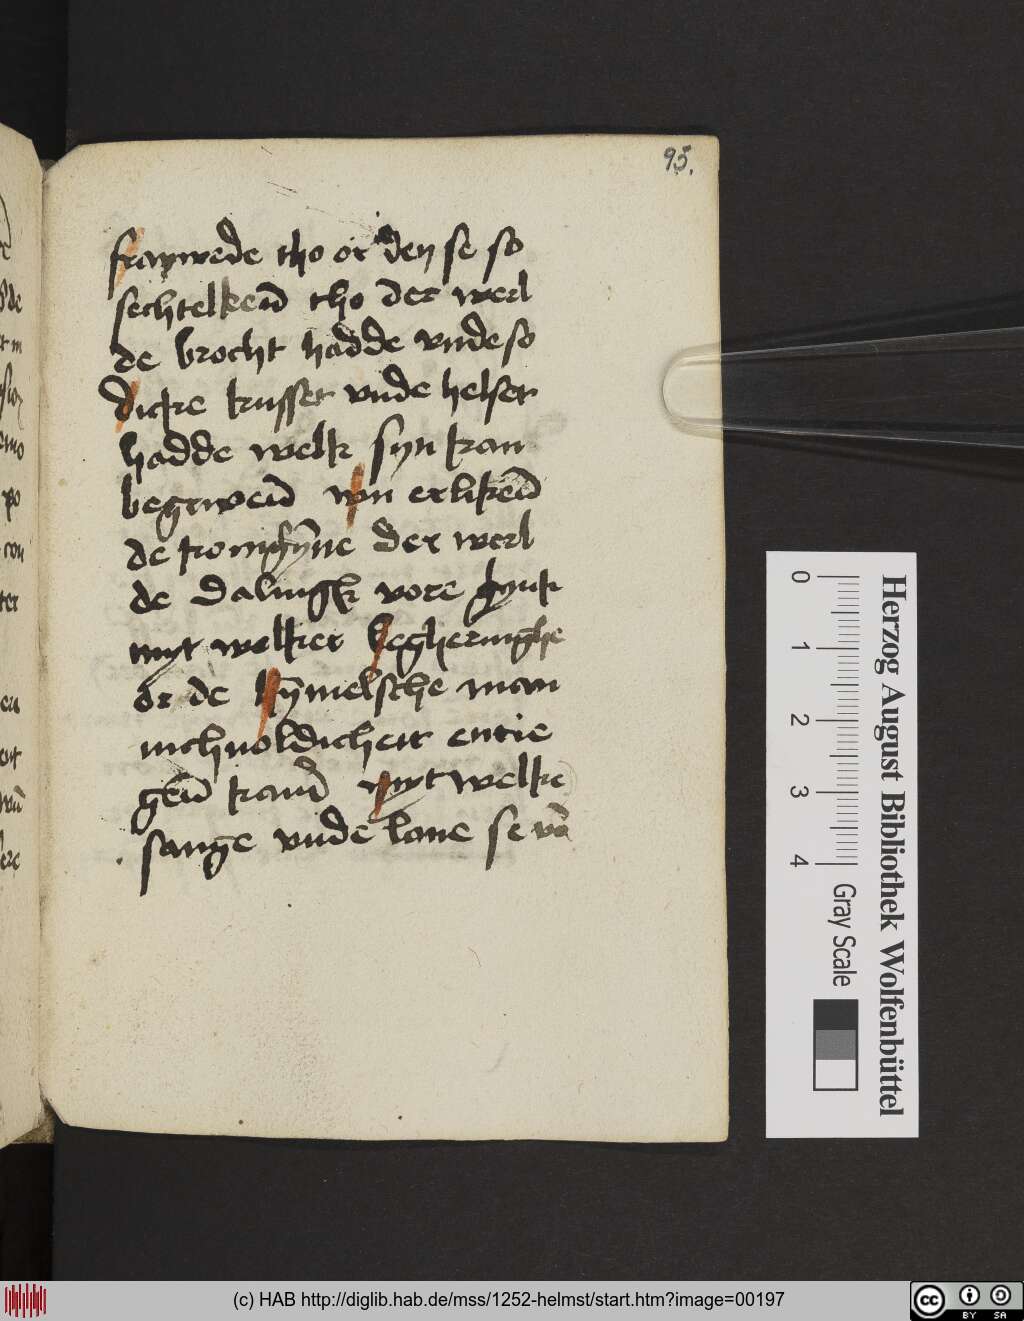 95.
frauwede tho or den se so
sechtelkenn̄ tho der werl
de brocht hadde vnde so
dicke kusset vnde helset
hadde welk syn kan
begrwen̄ wu erliken̄
de konnigȳne der werl
de dalingk vore gynk
myt welker begheringhe
or de hȳmelsche man
nichuoldicheit entie
gen̄ kam̄ myt welke
sange vnde laue se vā
Herzog August Bibliothek Wolfenbüttel
0 1 2 3 4 Gray Scale
(c) HAB http://diglib.hab.de/mss/1252-helmst/start.htm?image=00197
cc BY SA